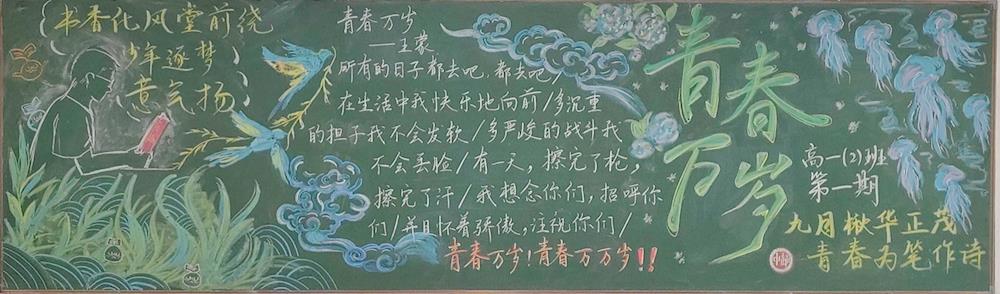 书香化风堂前绕
少年逐梦
意气扬
青春万岁
——王蒙
所有的日子都去吧，都去吧/
在生活中我快乐地向前/多沉重
的担子我不会发软/多严峻的战斗我
不会丢脸/有一天，擦完了枪，
擦完了汗/我想念你们，招呼你
们/并且怀着骄傲，注视你们/
青春万岁！青春万万岁！！
青春
万岁
高一(2)班
第一期
九月楸华正茂
青春为笔作诗